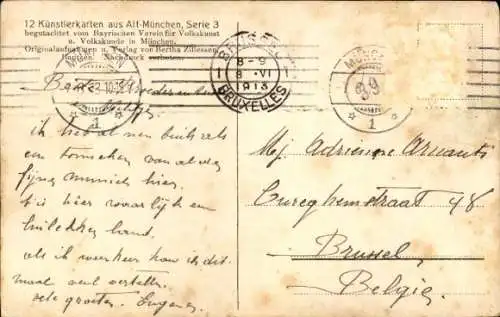 12 Künstlerkarten aus Alt-München, Serie 3
begutachtet vom Bayrischen Verein für Volkskunst
u. Volkskunde in München.
Originalaufnahmen u. Verlag von Bertha Zillessen,
Bautzen. Nachdruck verboten.
BRUSSEL
8-9
8 · VI
1913
BRUXELLES
1
MÜNCHEN
8-9
1
ik heb al een buik
en van al de
fijne munich hier.
is hier waarlijk een
land.
als ik weerkeer kan ik dit
maal veel vertellen.
vele groeten. Eugene
Mej Adrienne Arnauts
Cureghemstraat 48
Brussel
Belgie